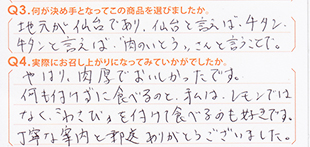 Q3.何が決め手となってこの商品を選びましたか。
地元が仙台であり、仙台と言えば、牛タン。
牛タンと言えば、"肉のいとう"さんと言うことで。
Q4.実際にお召し上がりになってみていかがでしたか。
やはり、肉厚でおいしかったです。
何も付けずに食べるのと、私は、レモンでは
なく、"わさび"を付けて食べるのも好きです。
丁寧な案内と郵送ありがとうございました。